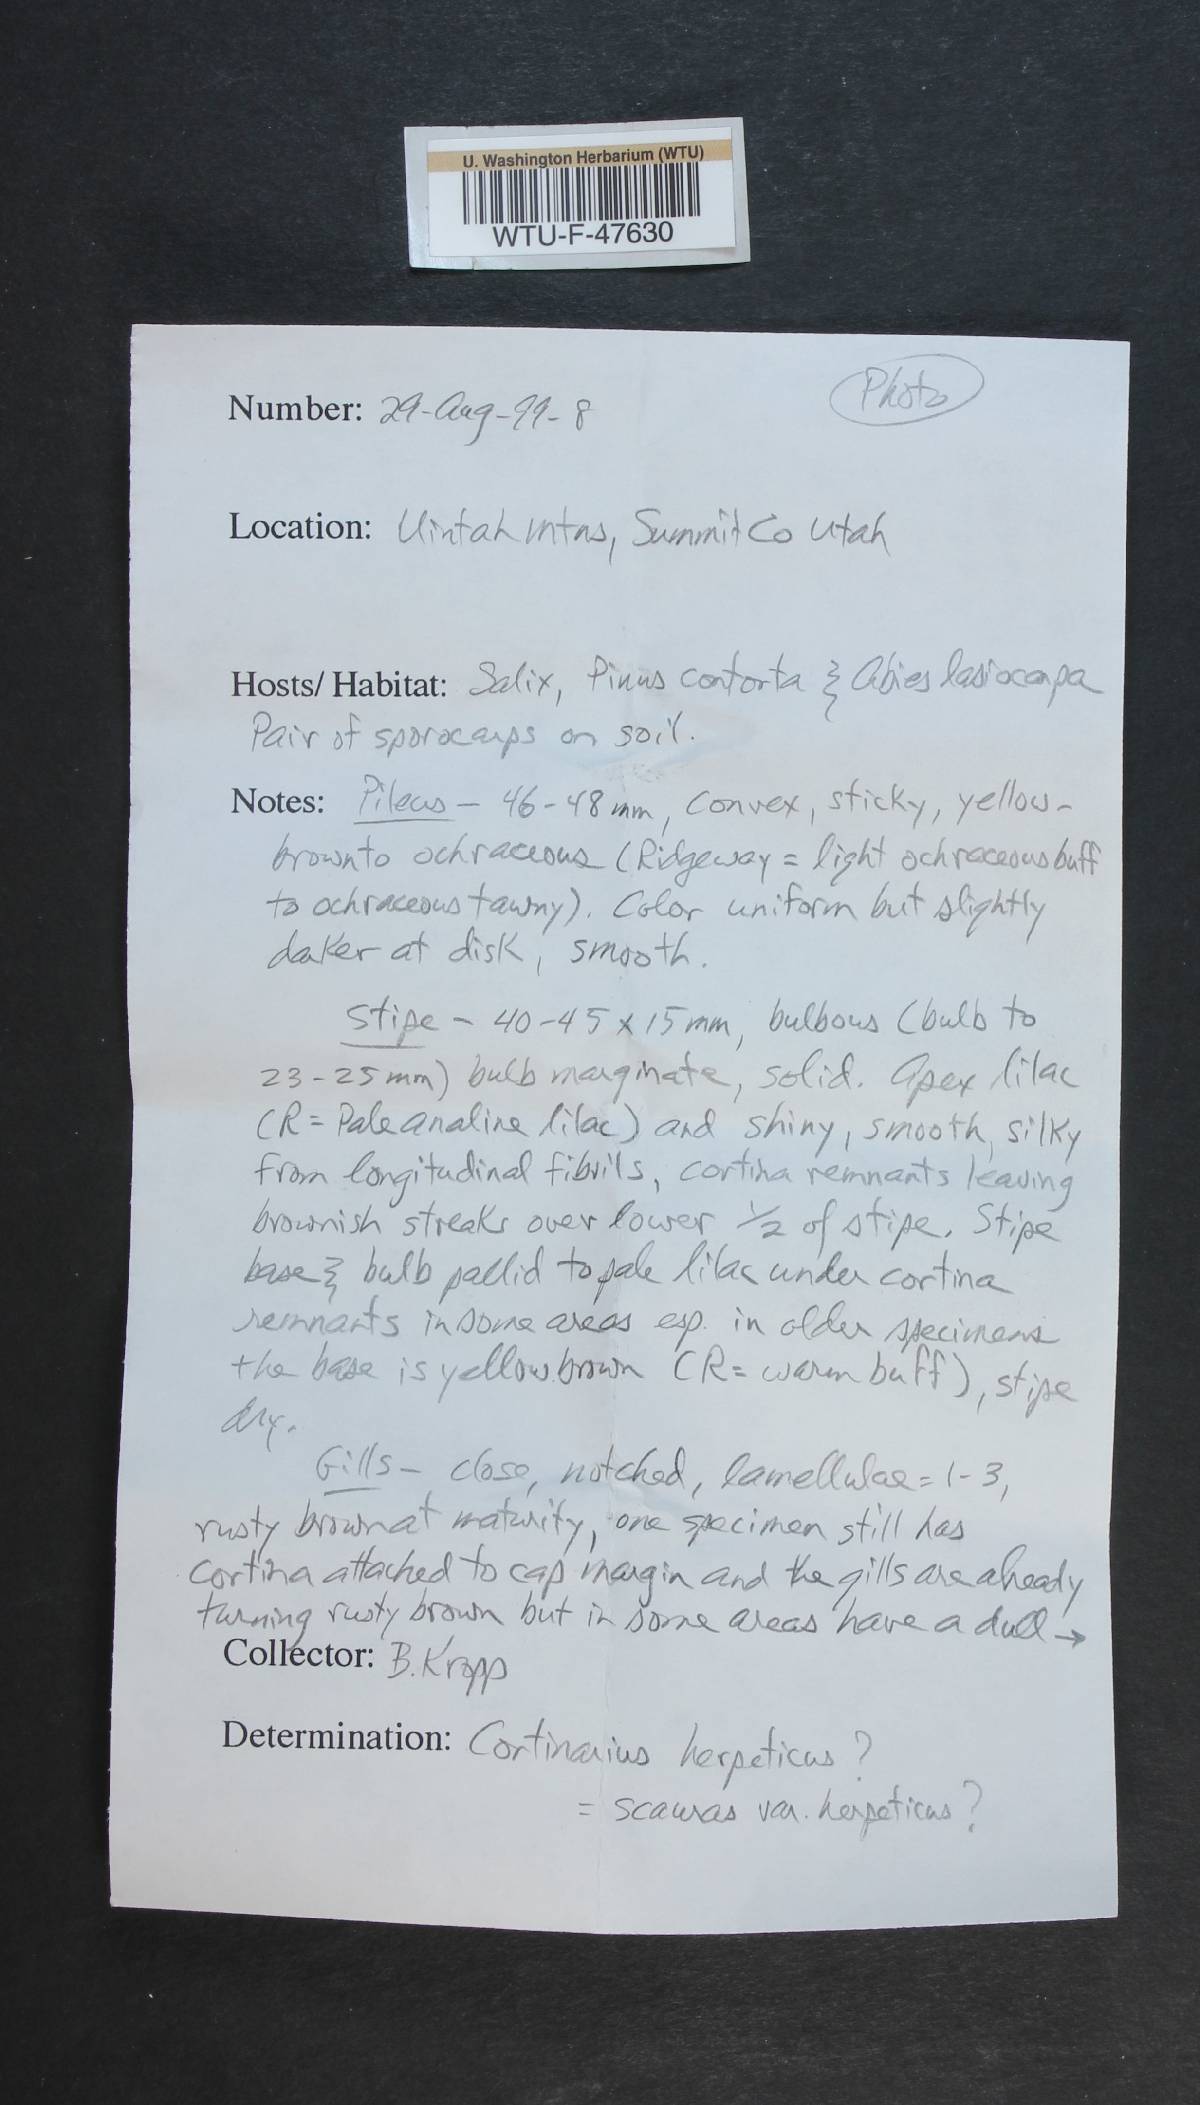 U. Washington Herbarium (WTU)
WTU-F-47630
Photo
Number: 29-Aug-99-8
Location: Uintah Mtns, Summit Co Utah
Hosts/ Habitat: Salix, Pinus contorta & Abies lasiocarpa
Pair of sporocarps on soil.
Notes: Pileus – 46-48 mm, convex, sticky, yellow-
brown to ochraceous (Ridgeway = light ochraceous buff
to ochraceous tawny). Color uniform but slightly
daker at disk, smooth.
Stipe – 40-45 x 15 mm, bulbous (bulb to
23-25 mm) bulb marginate, solid. Apex lilac
(R = Pale analine lilac) and shiny, smooth, silky
from longitudinal fibrils, cortina remnants leaving
brownish streaks over lower 1/2 of stipe. Stipe
base & bulb pallid to pale lilac under cortina
remnants in some areas esp. in older specimens
the base is yellow brown (R = warm buff), stipe
dry.
Gills – close, notched, lamellulae = 1-3,
rusty brown at maturity, one specimen still has
cortina attached to cap margin and the gills are already
turning rusty brown but in some areas have a dull →
Collector: B. Kropp
Determination: Cortinarius herpeticus?
= scauras var. herpeticus?